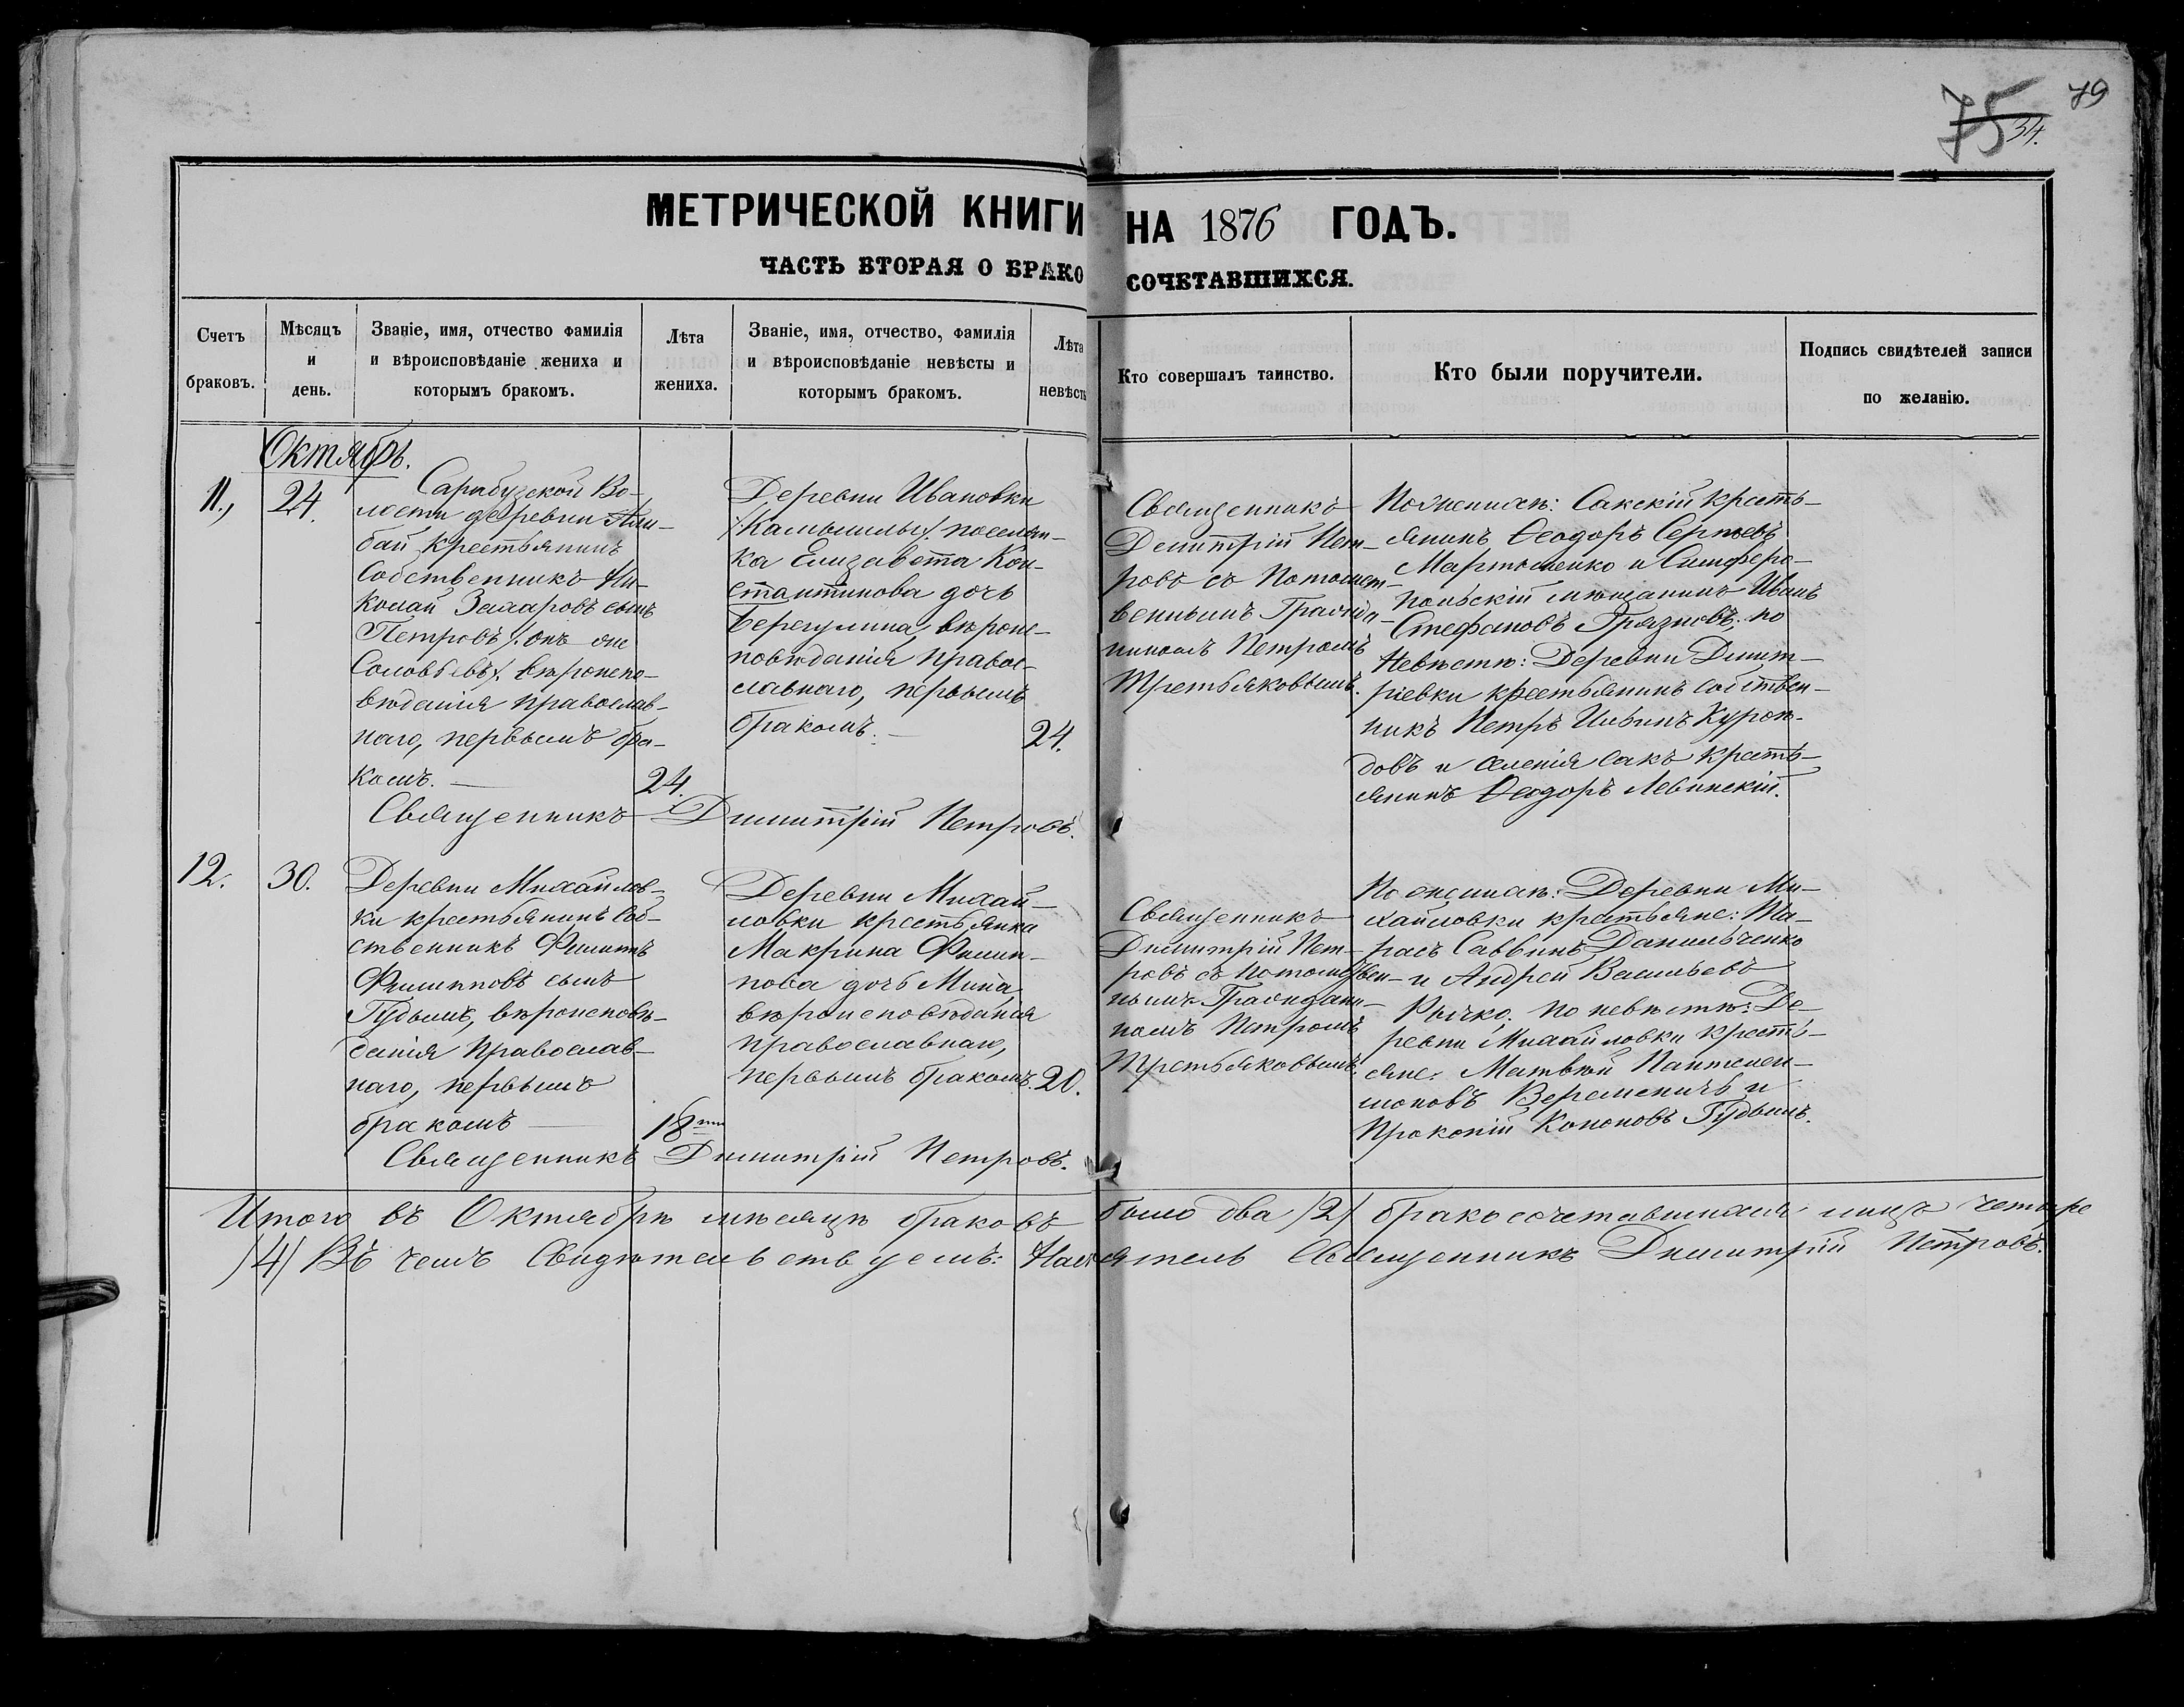 79
75
34.
МЕТРИЧЕСКОЙ КНИГИ НА 1876 ГОДЪ.
ЧАСТЬ ВТОРАЯ О БРАКОСОЧЕТАВШИХСЯ.
Счетъ браковъ.
Мѣсяцъ и день.
Званіе, имя, отчество фамилія
и вѣроисповѣданіе жениха и
которымъ бракомъ.
Лѣта жениха.
Званіе, имя, отчество, фамилія
и вѣроисповѣданіе невѣсты и
которымъ бракомъ.
Лѣта невѣсты
Кто совершалъ таинство.
Кто были поручители.
Подпись свидѣтелей записи
по желанію.
Октябрь.
11.,
24.
Сарабузской Во-
лости деревни
бай крестьянинъ
Собственникъ Ни-
колай Захаровъ сынъ
Петровъ /: онъ же
Соловьевъ:/. вѣроиспо-
вѣданія православ-
наго, первымъ бра-
комъ. —
24.
Деревни Ивановки
/Камышлы/. поселян-
ка Елизавета Кон-
стантинова дочь
Берегулина, вѣроис-
повѣданія правос-
лавнаго, первымъ
бракомъ. —
24.
Священникъ Димитрій Петровъ.
Священникъ
Димитрій Пет-
ровъ съ Потомст-
веннымъ Гражда-
ниномъ Петромъ
Третьяковымъ.
По женихѣ: Сакскій кресть-
янинъ Ѳеодоръ Сергѣевъ
Мартыненко и Симферо-
польскій мѣщанинъ Иванъ
Стефановъ Грязновъ; по
Невѣстѣ: Деревни Дмит-
ріевки крестьянинъ собствен-
никъ Петръ Ильинъ Куроѣ-
довъ и селенія Сакъ кресть-
янинъ Ѳеодоръ Левинскій.
12.
30.
Деревни Михайлов-
ки крестьянинъ Соб-
ственникъ Филиппъ
Филипповъ сынъ
Гудымъ, вѣроисповѣ-
данія Православ-
наго, первымъ
бракомъ —
18ти
Деревни Михай-
ловки крестьянка
Макрина Филип-
пова дочь Мина,
вѣроисповѣданія
православнаго,
первымъ бракомъ.
20.
Священникъ Димитрій Петровъ.
Священникъ
Димитрій Пет-
ровъ съ Потомствен-
нымъ Граждани-
номъ Петромъ
Третьяковымъ.
По женихѣ: Деревни Ми-
хайловки крестьяне: Та-
расъ Саввинъ Данильченко
и Андрей Васильевъ
Ричко; по невѣстѣ: Де-
ревни Михайловки кресть-
яне: Матвѣй Пантелей-
моновъ Веременичъ и
Прокопій Кононовъ Гудымъ.
Итого въ Октябрѣ мѣсяцѣ браковъ было два /2/ бракосочетавшихся лицъ четыре
/4/ Въ чемъ Свидѣтельствуемъ: Настоятель Священникъ Димитрій Петровъ.